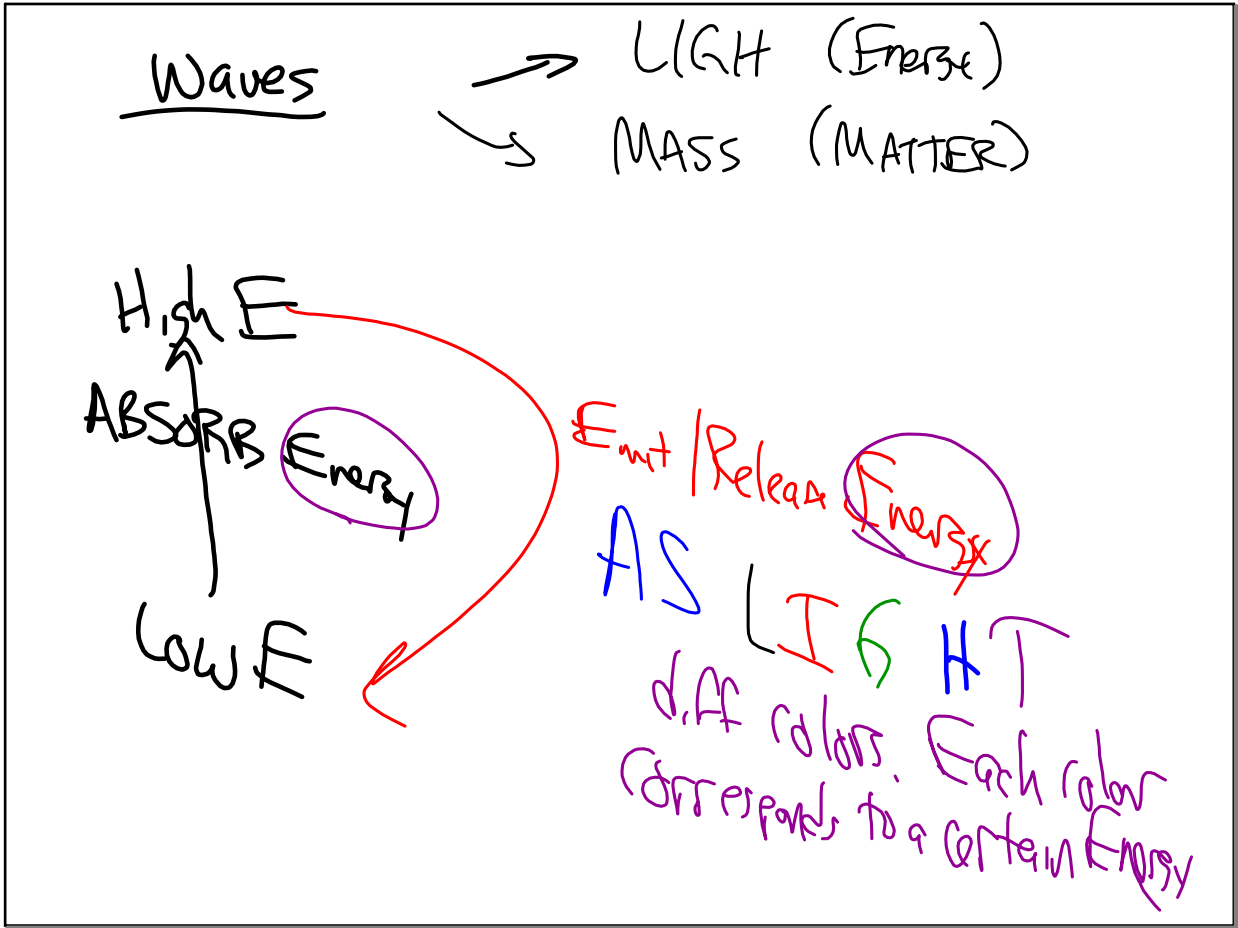 Waves
LIGH (Energy)
MASS (MATTER)
High E
ABSORB Energy
Low E
Emit/Release Energy
AS LIGHT
diff colors. Each color
corresponds to a certain Energy